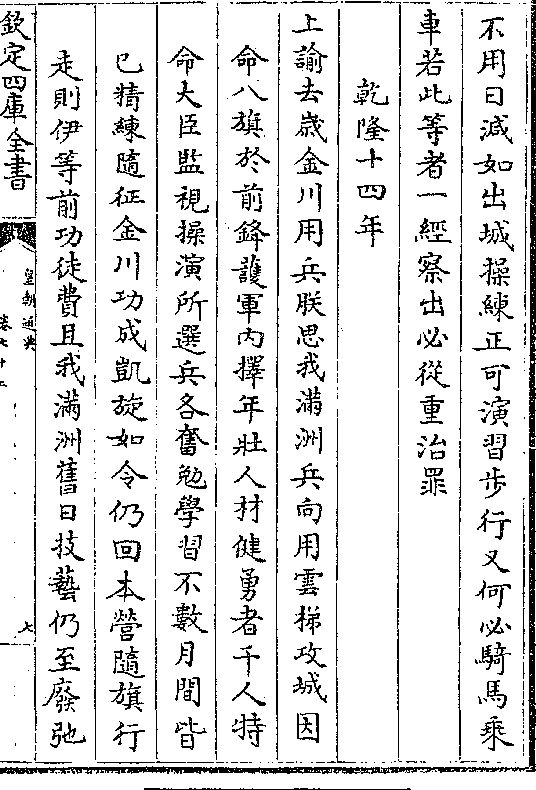 不用日減如出城操練正可演習步行又何必騎馬乘
車若此等者一經察出必從重治罪
乾隆十四年
上諭去歲金川用兵朕思我滿洲兵向用雲梯攻城因
命八旗於前鋒護軍內擇年壯人材健勇者千人特
命大臣監視操演所選兵各奮勉學習不數月間皆
已精練隨征金川功成凱旋如令仍回本營隨旗行
走則伊等前功徒費且我滿洲舊日技藝仍至廢弛
欽定四庫全書
皇朝通典
七